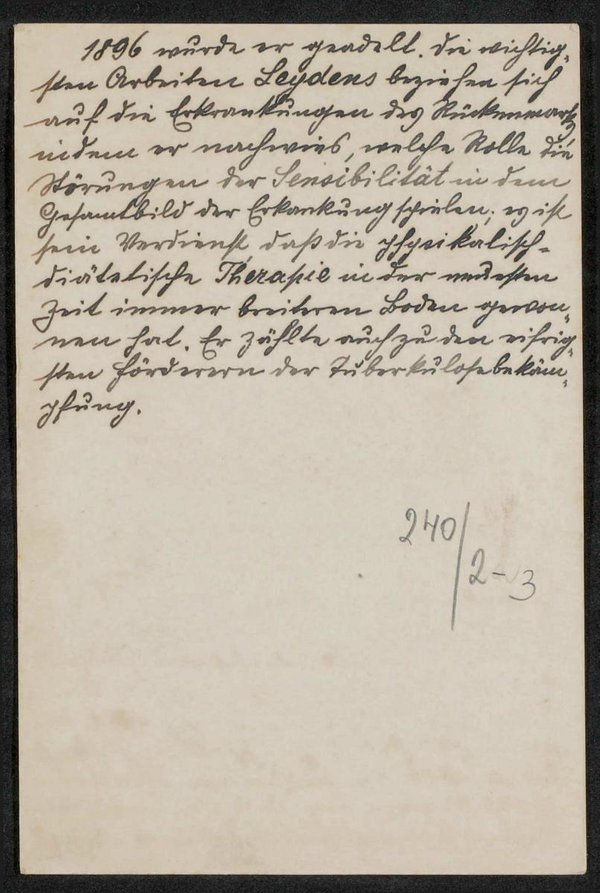 1896 wurde er geadelt. Die wichtig-
sten Arbeiten Leydens beziehen sich
auf die Erkrankungen des Rückenmarks,
indem er nachwies, welche Rolle die
Störungen der Sensibilität in dem
Gesamtbild der Erkankung spielen; es ist
sein Verdienst daß die physikalisch-
diätetische Therapie in der neuesten
Zeit immer breiteren Boden gewon-
nen hat. Er zählte auch zu den eifrig-
sten Förderern der Tuberkulosebekäm-
pfung.
240/2-3